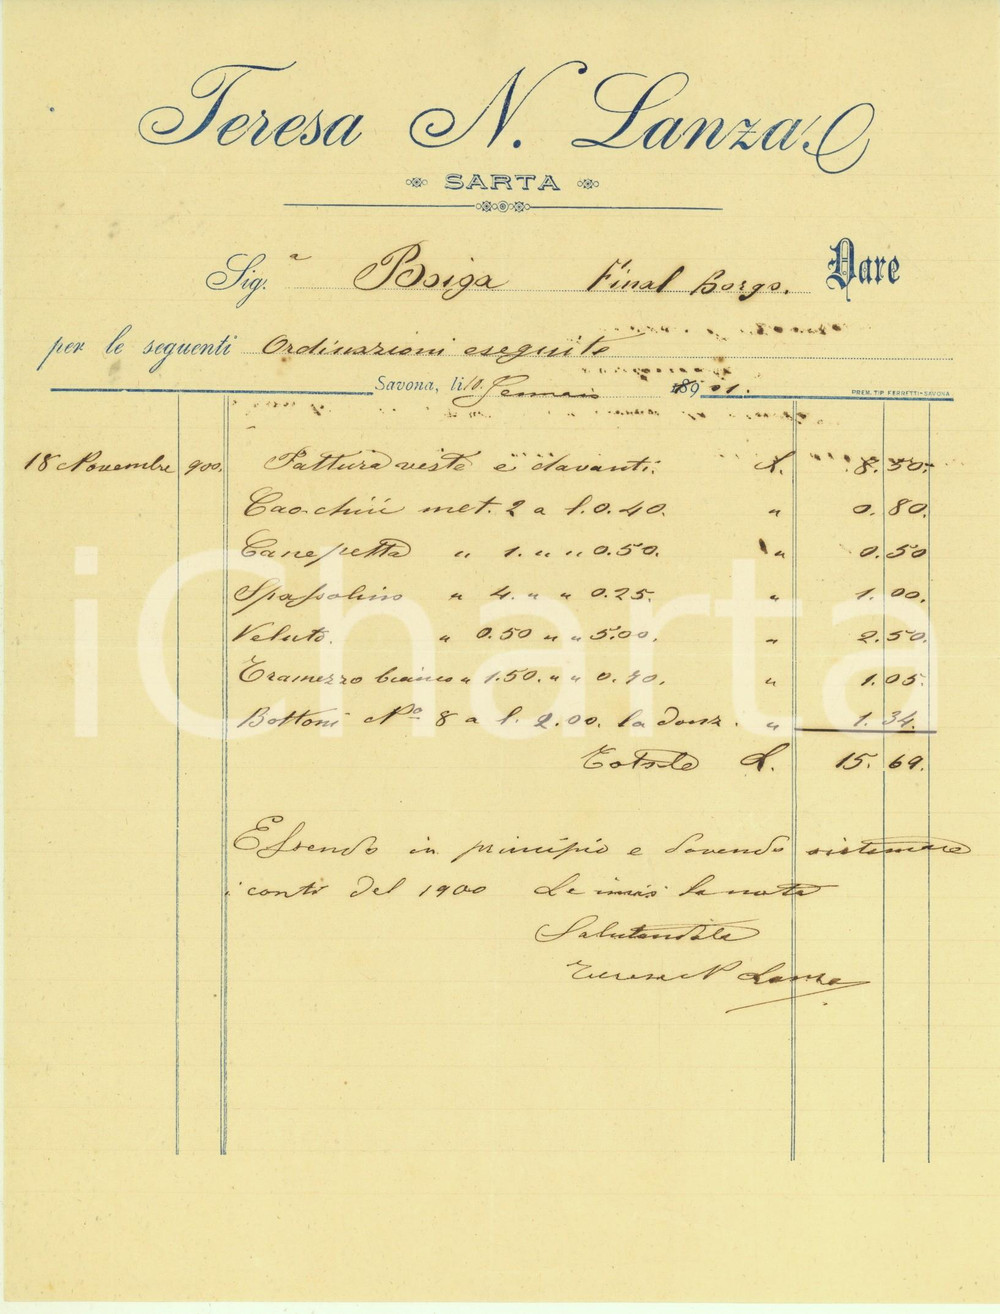 Teresa N. Lanza
SARTA
Sig.ª Boiga Final Borgo. Dare
per le seguenti Ordinazioni eseguite
Savona, li 10. Gennaio 1901.
PREM. TIP. FERRETTI-SAVONA
18 Novembre 900. Fattura veste e davanti. £. 8.50.
met. 2 a l. 0.40. " 0.80.
Canepetta " 1. " " 0.50. " 0.50
Spassolino " 4. " " 0.25. " 1.00.
Veluto. " 0.50 " " 5.00. " 2.50.
Tramezzo bianco " 1.50. " " 0.70. " 1.05.
Bottoni No 8 a l. 2.00. la donz. " 1.34.
Totale £. 15.69.
Essendo in principio e dovendo sistemare
i conti del 1900 Le invio la nota
Salutandola
Teresa N Lanza
iCharta